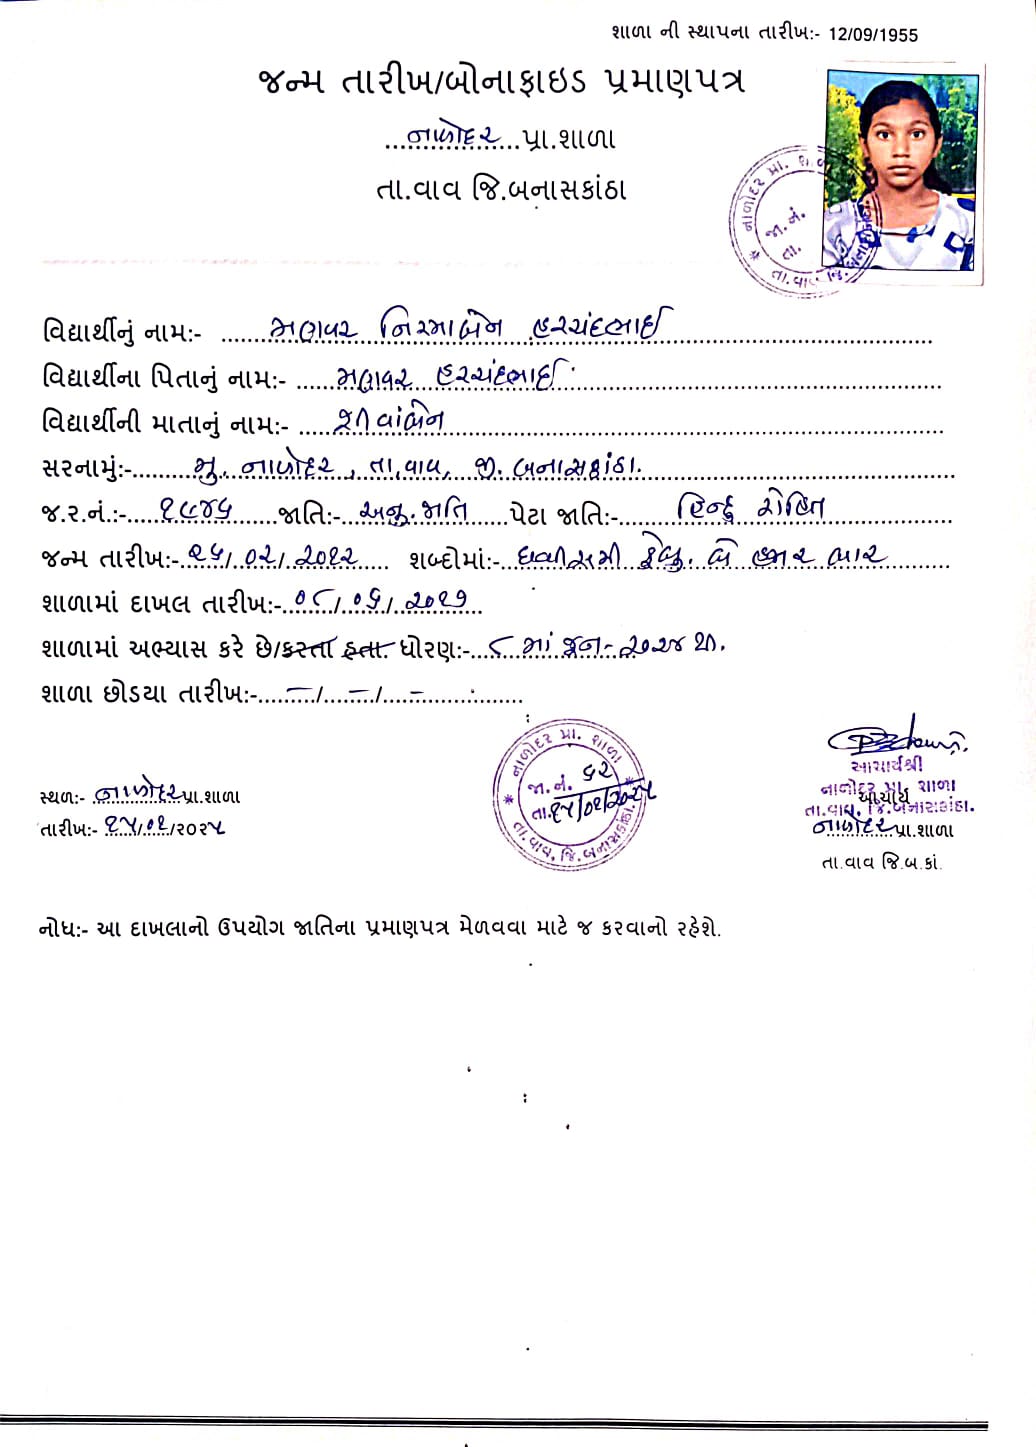 શાળા ની સ્થાપના તારીખ:- 12/09/1955
જન્મ તારીખ/બોનાફાઇડ પ્રમાણપત્ર
...નાળોદર...પ્રા.શાળા
તા.વાવ જિ.બનાસકાંઠા
નાળોદર પ્રા. શાળા
જા. નં.
તા.
તા.વાવ, જિ.બનાસકાંઠા
વિદ્યાર્થીનું નામ:- મણવર નિરમાબેન હરચંદભાઈ
વિદ્યાર્થીના પિતાનું નામ:- મણવર હરચંદભાઈ
વિદ્યાર્થીની માતાનું નામ:- જીવાંબેન
સરનામું:- મુ. નાળોદર, તા.વાવ, જી. બનાસકાંઠા.
જ.ર.નં.:- જાતિ:- અનુ. જાતિ પેટા જાતિ:- હિન્દુ રોહિત
જન્મ તારીખ:- ૨૬/૦૨/૨૦૧૨ શબ્દોમાં:- છવ્વીસમી ફેબ્રુ. બે હજાર બાર
શાળામાં દાખલ તારીખ:- ૦૮/૦૬/૨૦૧૭
શાળામાં અભ્યાસ કરે છે/કરતા હતા ધોરણ:- ૮ માં જુન-૨૦૨૪ થી.
શાળા છોડયા તારીખ:- –/–/–
નાળોદર પ્રા. શાળા
જા. નં. ૬૨
તા.૧૫/૦૧/૨૦૨૫
તા.વાવ, જિ.બનાસકાંઠા.
આચાર્યશ્રી
નાળોદર પ્રા. શાળા
તા.વાવ, જિ.બનાસકાંઠા.
આચાર્ય
સ્થળ:- નાળોદર પ્રા.શાળા
નાળોદર પ્રા.શાળા
તારીખ:- ૧૫/૦૧/૨૦૨૫
તા.વાવ જિ.બ.કાં.
નોધ:- આ દાખલાનો ઉપયોગ જાતિના પ્રમાણપત્ર મેળવવા માટે જ કરવાનો રહેશે.